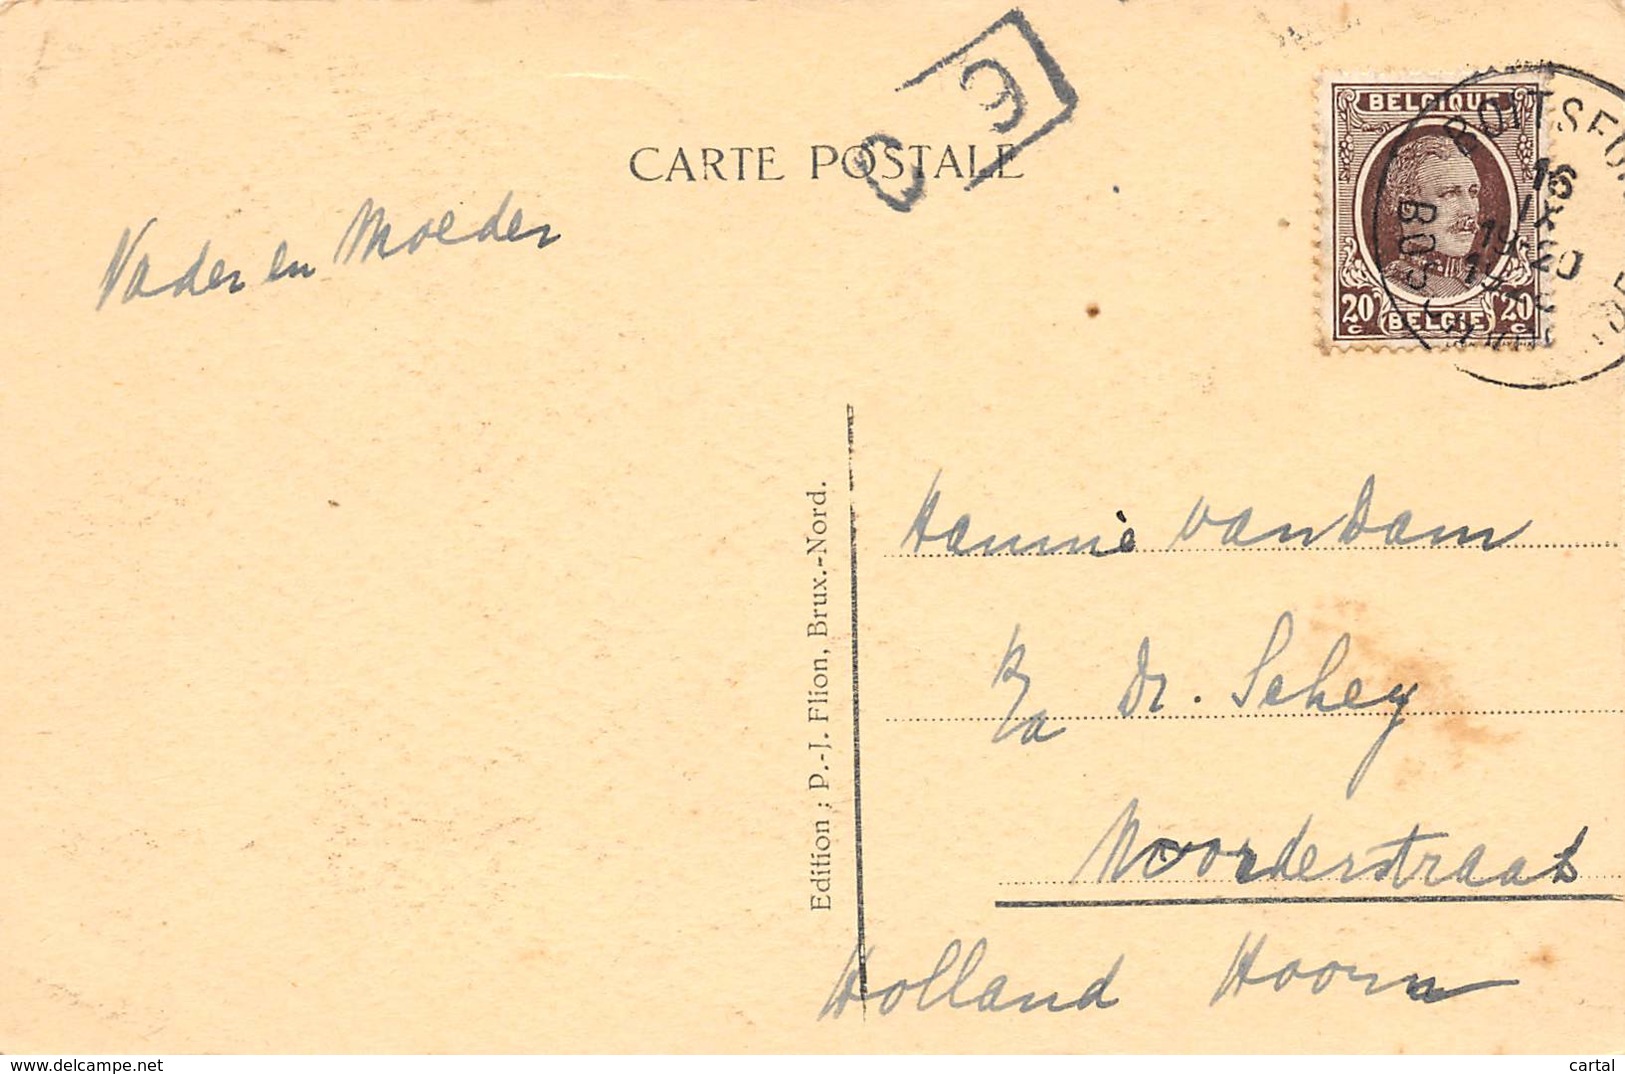 CARTE POSTALE
BELGIQUE
20 c
BELGIE
20 c
BOITSFOR
16
IX
19-20
BOSCH
Vader en Moeder
Edition : P.-J. Flion, Brux.-Nord.
Hannie van Dam
p/a Dr. Schey
Noorderstraat
Holland Hoorn
www.delcampe.net
cartal